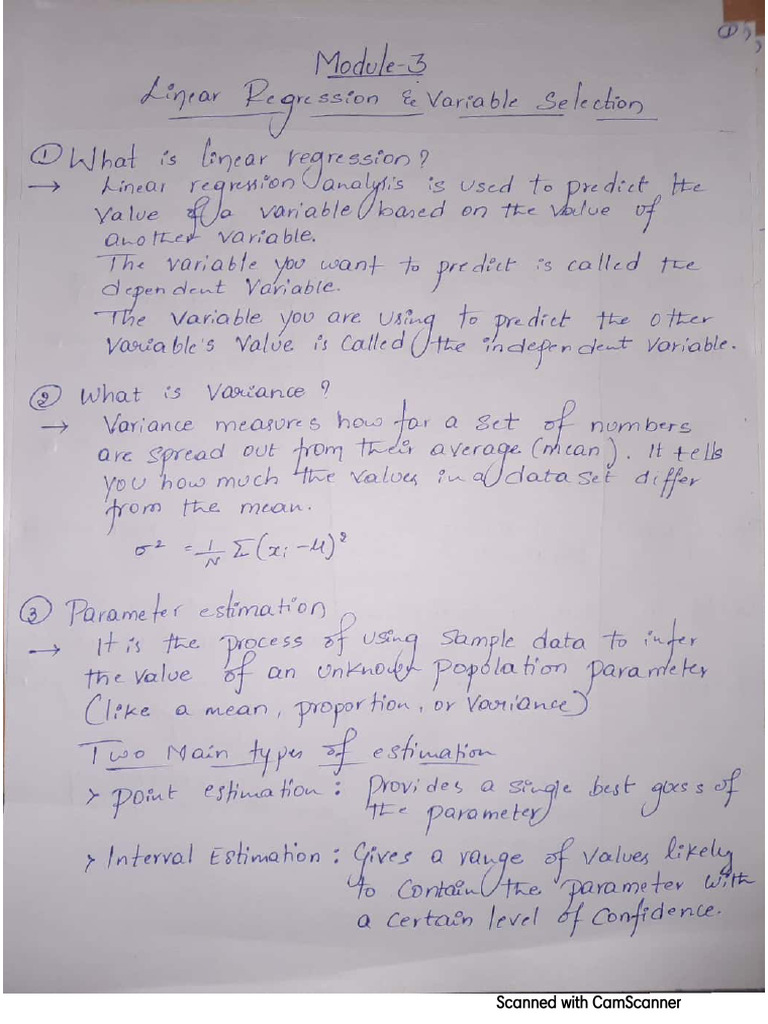 ①,,
Module-3
Linear Regression & Variable Selection
① What is linear regression?
→ Linear regression analysis is used to predict the
value of a variable based on the value of
another variable.
The variable you want to predict is called the
dependent variable.
The variable you are using to predict the other
variable's value is called the independent variable.
② What is variance?
→ Variance measures how far a set of numbers
are spread out from their average (mean). It tells
you how much the values in a data set differ
from the mean.
σ² = 1/N Σ(xi - μ)²
③ Parameter estimation
→ It is the process of using sample data to infer
the value of an unknown population parameter
(like a mean, proportion, or variance)
Two Main types of estimation
> Point estimation: Provides a single best guess of
the parameter
> Interval Estimation: Gives a range of values likely
to contain the parameter with
a certain level of confidence.
Scanned with CamScanner